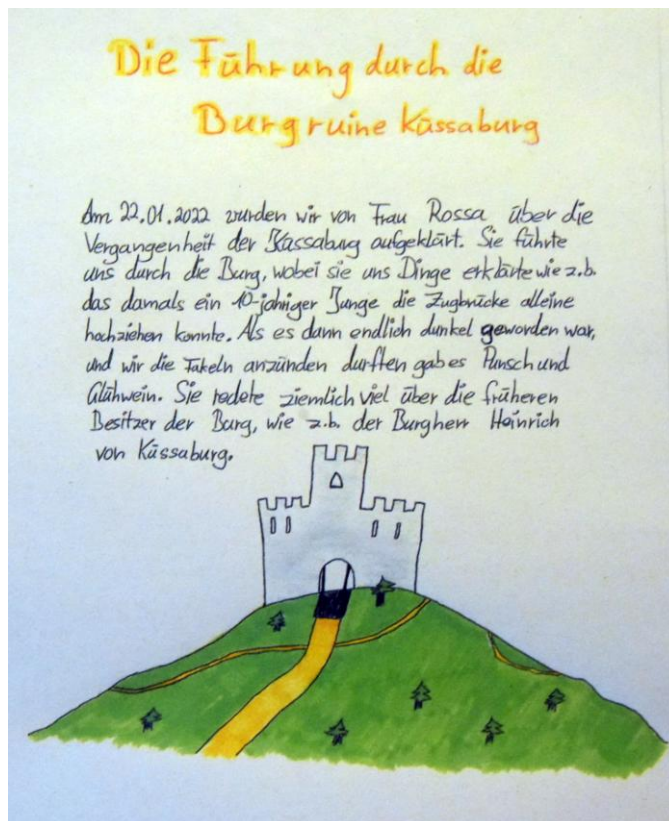 Die Führung durch die
Burgruine Küssaburg
Am 22.01.2022 wurden wir von Frau Rossa über die
Vergangenheit der Küssaburg aufgeklärt. Sie führte
uns durch die Burg, wobei sie uns Dinge erklärte wie z.b.
das damals ein 10-jähriger Junge die Zugbrücke alleine
hochziehen konnte. Als es dann endlich dunkel geworden war,
und wir die Fakeln anzünden durften gab es Punsch und
Glühwein. Sie redete ziemlich viel über die früheren
Besitzer der Burg, wie z.b. der Burgherr Heinrich
von Küssaburg.